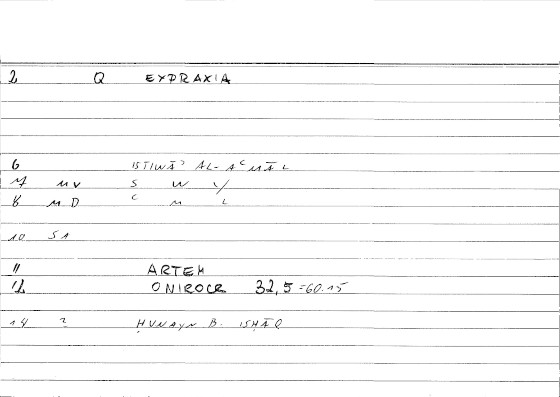 2 Q EXPRAXIA
6 ISTIWĀʾ AL-AʿMĀL
7 MV S W Y
8 MD C M L
10 SA
11 ARTEM
12 ONIROCR 32,5 =60.15
14 2 ḤUNAYN B. ISḤĀQ